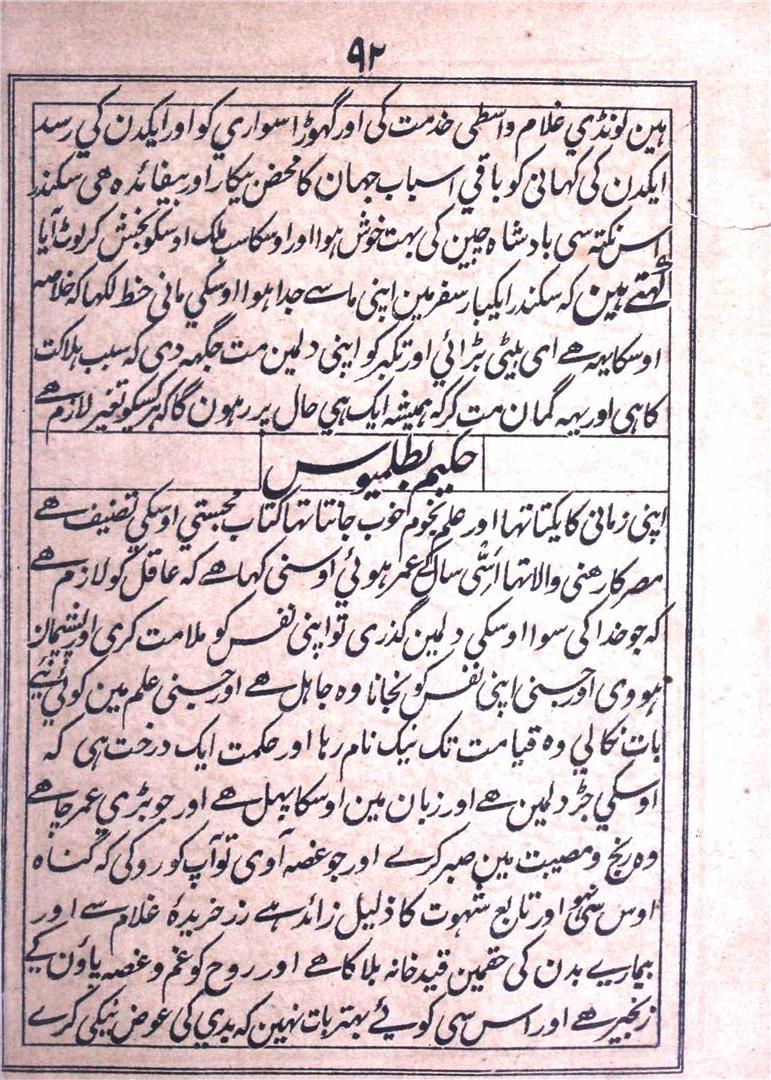 ۹۲
ہین لونڈي غلام واسطی خدمت کی اور گھوڑا سواري کو اور ایکدن کي رسد
ایکدن کی کہانی کو باقي اسباب جہان کا محض بیکار اور بیفائدہ ھی سکندر
اس نکتہ سی بادشاہ چین کی بہت خوش ہوا اور اوسکا سب ملک اوسکو بخش کر لوٹ آیا
کہتے ہین کہ سکندر ایکبار سفر مین اپنی ما سے جدا ہوا اوسکي مانی خط لکھا کہ خلاصہ
اوسکا یہہ ھے ای بیٹی بڑائي اور تکبر کو اپنی دلمین مت جگہہ دی کہ سبب ہلاکت
کا ہی اور یہہ گمان مت کر کہ ہمیشہ ایک ہي حال پر رہون گا کہ ہر کسیکو تغیر لازم ھے
حکیم بطلمیوس
اپنی زمانی کا یکتا تہا اور علم نجوم خوب جانتا تہا کتاب مجستي اوسکي تصنیف ھے
مصر کا رھنی والا تہا اسّی سال کی عمر ہوئي اوسنی کہا ھے کہ عاقل کو لازم ھے
کہ جو خدا کی سوا اوسکي دلمین گذری تو اپنی نفس کو ملامت کری اور پشیمان
ہووی اور جسنی اپنی نفس کو نجانا وہ جاہل ھے اور جسنی علم مین کوئي نئی
بات نکالي وہ قیامت تک نیک نام رہا اور حکمت ایک درخت ہی کہ
اوسکي جڑ دلمین ھے اور زبان مین اوسکا پہل ھے اور جو بڑي عمر چاھے
وہ رنج و مصیبت مین صبر کرے اور جو غصہ آوی تو آپ کو روکی کہ گناہ
اوس سی نہو اور تابع شہوت کا ذلیل زائد ہے زر خریدۂ غلام سے اور
بیماریے بدن کی حقمین قید خانہ بلا کا ھے اور روح کو غم و غصہ پاؤن کے
زنجیر ھے اور اس سی کویے بہتر بات نہین کہ بدي کی عوض نیکی کرے